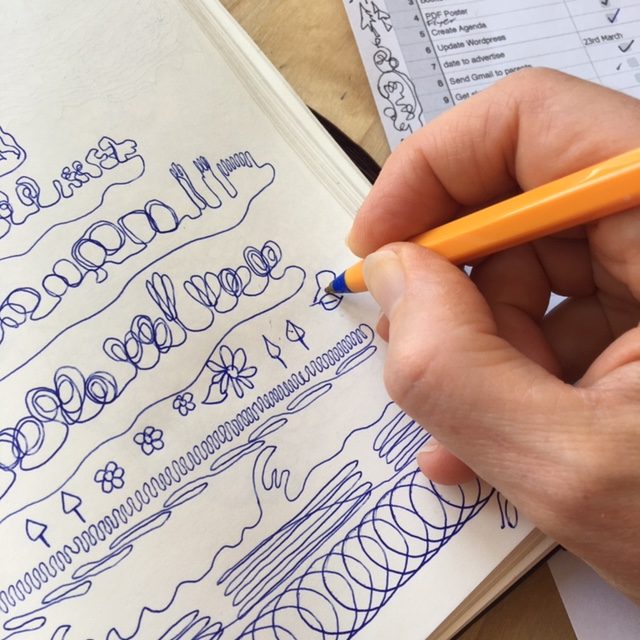 4 PDF Poster
Flyer
Create Agenda
6 Update Wordpress 23rd March
7 date to advertise
8 Send Gmail to parents
9 Get